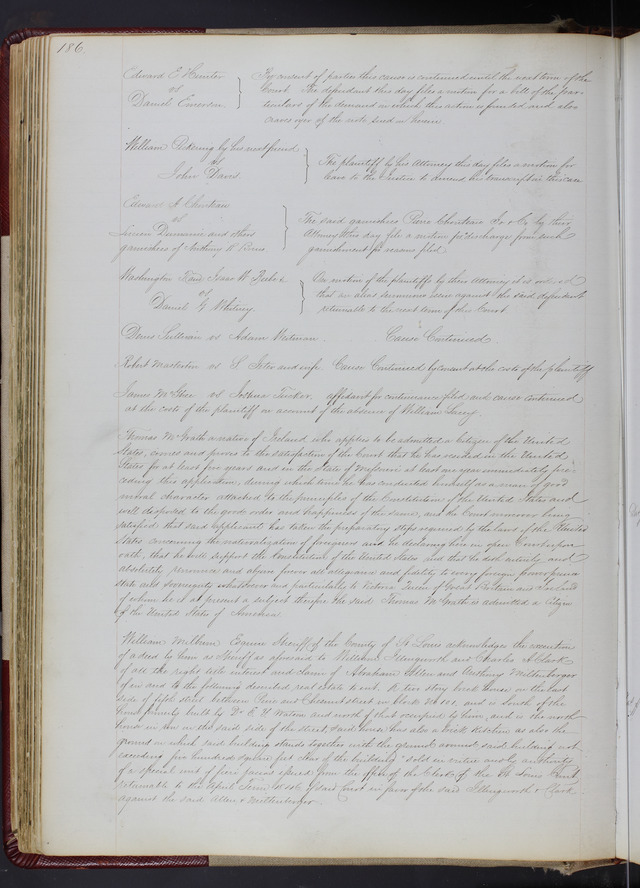 186
Edward E Hunter
vs
Daniel Emerson.
By consent of parties this cause is continued until the next term of the
Court. The defendant this day files a motion for a bill of the par-
ticulars of the demand on which this action is founded and also
craves oyer of the note sued on herein
William by his next friend
vs
John Davis
The plaintiff by his Attorney this day files a motion for
leave to the Justice to amend his transcript in this case
Edward A Chouteau
vs
and others
garnishees of Anthony R
The said garnishees Pierre Chouteau Jr & Co by their
Attorney this day file a motion to discharge from such
garnishment for reasons filed
Washington King Isaac W
vs
Daniel G Whitney.
On motion of the plaintiffs by their Attorney it is ordered
that an alias summons issue against the said defendant
returnable to the next term of this Court
Denis Sullivan vs Adam Cause Continued
Robert Masterton vs S. and wife. Cause Continued by consent at the costs of the plaintiff
James McGhee vs Joshua Tucker. affidavit for continuance filed and cause continued
at the costs of the plaintiff on account of the absence of William
Thomas McGrath a native of Ireland who applies to be admitted a Citizen of the United
States, comes and proves to the satisfaction of the Court that he has resided in the United
States for at least five years and in the State of Missouri at least one year immediately pre-
ceding this application, during which time he has conducted himself as a man of good
moral character attached to the principles of the Constitution of the United States and
well disposed to the good order and happiness of the same, and the Court moreover being
satisfied that said applicant has taken the preparatory steps required by the laws of the United
States concerning the naturalization of foreigners and he declaring here in open Court upon
oath, that he will support the Constitution of the United States and that he doth entirely and
absolutely renounce and abjure forever all allegiance and fidelity to every foreign power prince
state and sovereignty whatsoever and particularly to Victoria Queen of Great Britain and Ireland
of whom he is at present a subject therefore the said Thomas McGrath is admitted a Citizen
of the United States of America
William Milburn Esquire Sheriff of the County of St Louis acknowledges the execution
of a deed by him as Sheriff as aforesaid to William Illingworth and Charles A Clark
of all the right title interest and claim of Abraham Allen and Anthony Miltenberger
of in and to the following described real estate to wit. A two story brick house on the east
side of fifth street between Pine and Chesnut street in block No 101, and is South of the
house formerly built by W. H Watson and north of that occupied by him, and is the north
house in row on the said side of the street, said house has also a brick kitchen as also the
ground on which said building stands together with the ground around said building not
exceeding five hundred square feet clear of the building sold in virtue and by authority
of a special writ of fieri facias issued from the office of the Clerk of the St Louis Court
returnable to the April Term of said Court in favor of the said Illingworth & Clark
against the said Allen & Miltenberger.